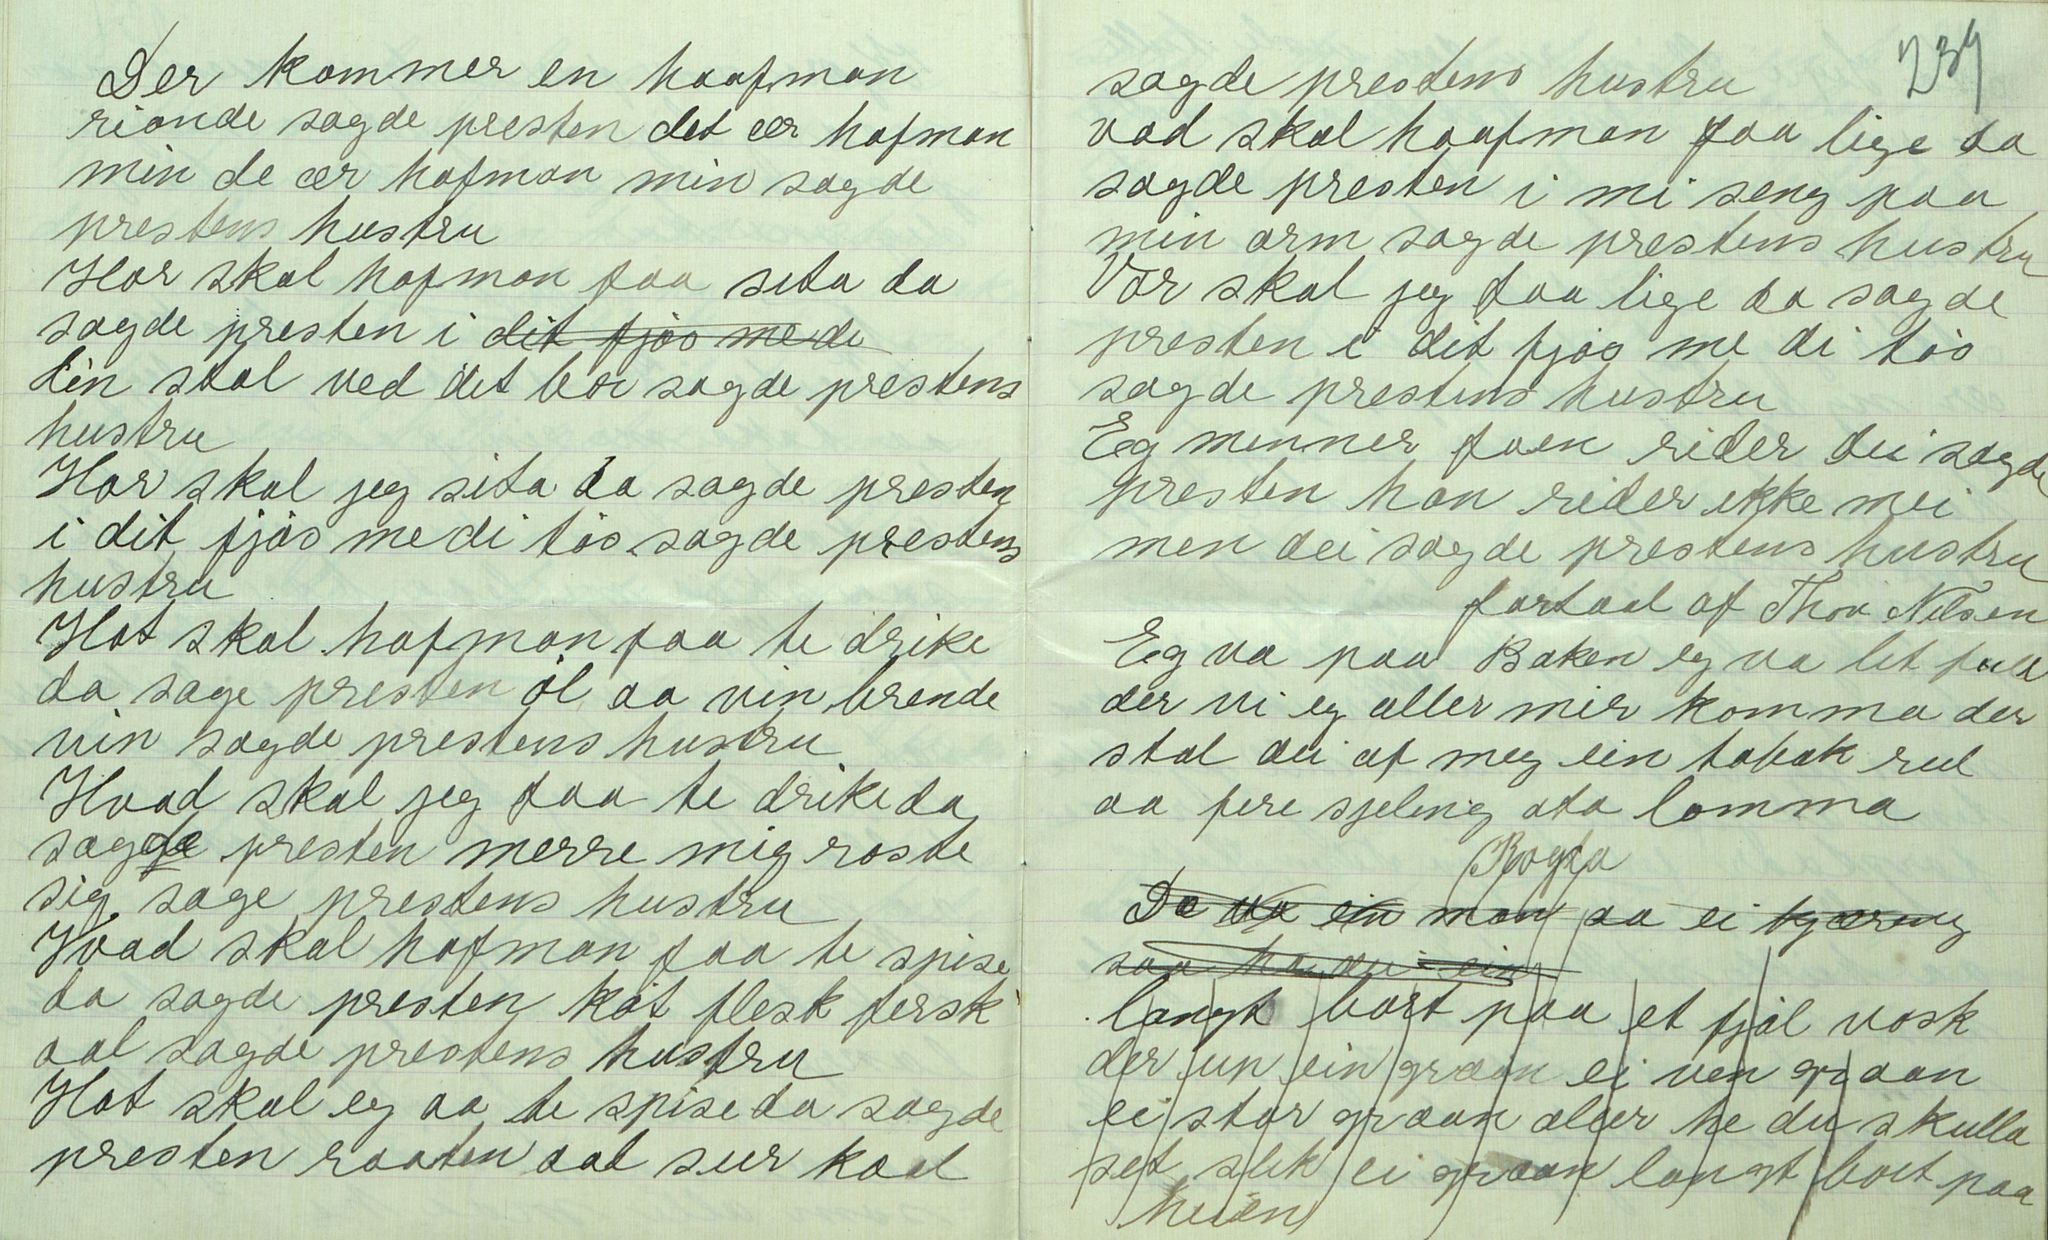 Der kommer en haafman
rionde sagde presten det ær hafman
min de ær hafman min sagde
prestens hustru
Hor skal hafman faa sita da
sagde presten i dit fjøs me di
din stol ved det bor sagde prestens
hustru
Hor skal jeg sita da sagde presten
i dit fjøs me di tøs sagde prestens
hustru
Hot skal hafman faa te drike
da sage presten øl aa vin brende
vin sagde prestens hustru
Hvad skal jeg faa te drike da
sagde presten merre mig roste
sig sage prestens hustru
Hvad skal hafman faa te spise
da sagde presten køt flesk fersk
aal sagde prestens hustru
Hot skal eg aa te spise da sagde
presten raaten aal sur kaal
239
sagde prestens hustru
vad skal haafman faa lige da
sagde presten i mi seng paa
min arm sagde prestens hustru
Vor skal jeg faa lige da sagde
presten i dit fjøs me di tøs
sagde prestens hustru
Eg menner faen rider dei sagde
presten han rider ikke mei
men dei sagde prestens hustru
fartaal af Thor Nilsen
Eg va paa Baken eg va let paa
der vi eg aller mir komma der
stal dei af meg ein tabak rul
aa fire sjeling ata lomma
Rogda
De va ein man aa ei kjæreng
saa ha dei ein
langt bort paa et fjøl vosk
der up ein graan ei ven graan
ei stor graan aller he du skulla
set slik ei graan langt bort paa
heien